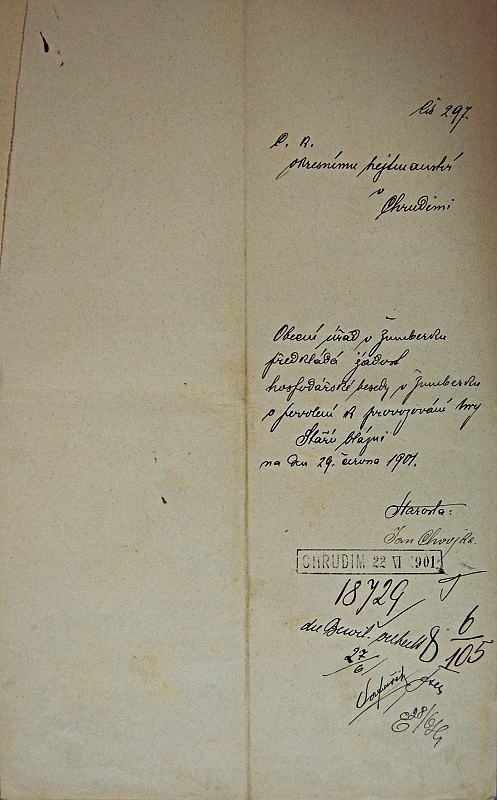 Čís 297.
C. K.
okresnímu hejtmanství
v
Chrudimi
Obecní úřad v Žumberku
předkládá žádost
hospodářské besedy v Žumberku
o povolení k provozování hry
Staří blázni
na den 29. června 1901.
Starosta:
Jan Chvojka
CHRUDIM 22 VI 1901
18729
die Bewil.
8 6/105
27/6